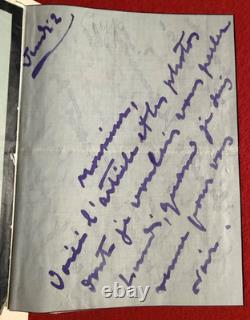 Jeudi 2
Monsieur,
Voici l'article et les photos
dont je voulais vous parler
lundi, quand je suis
venue pour vous
voir.